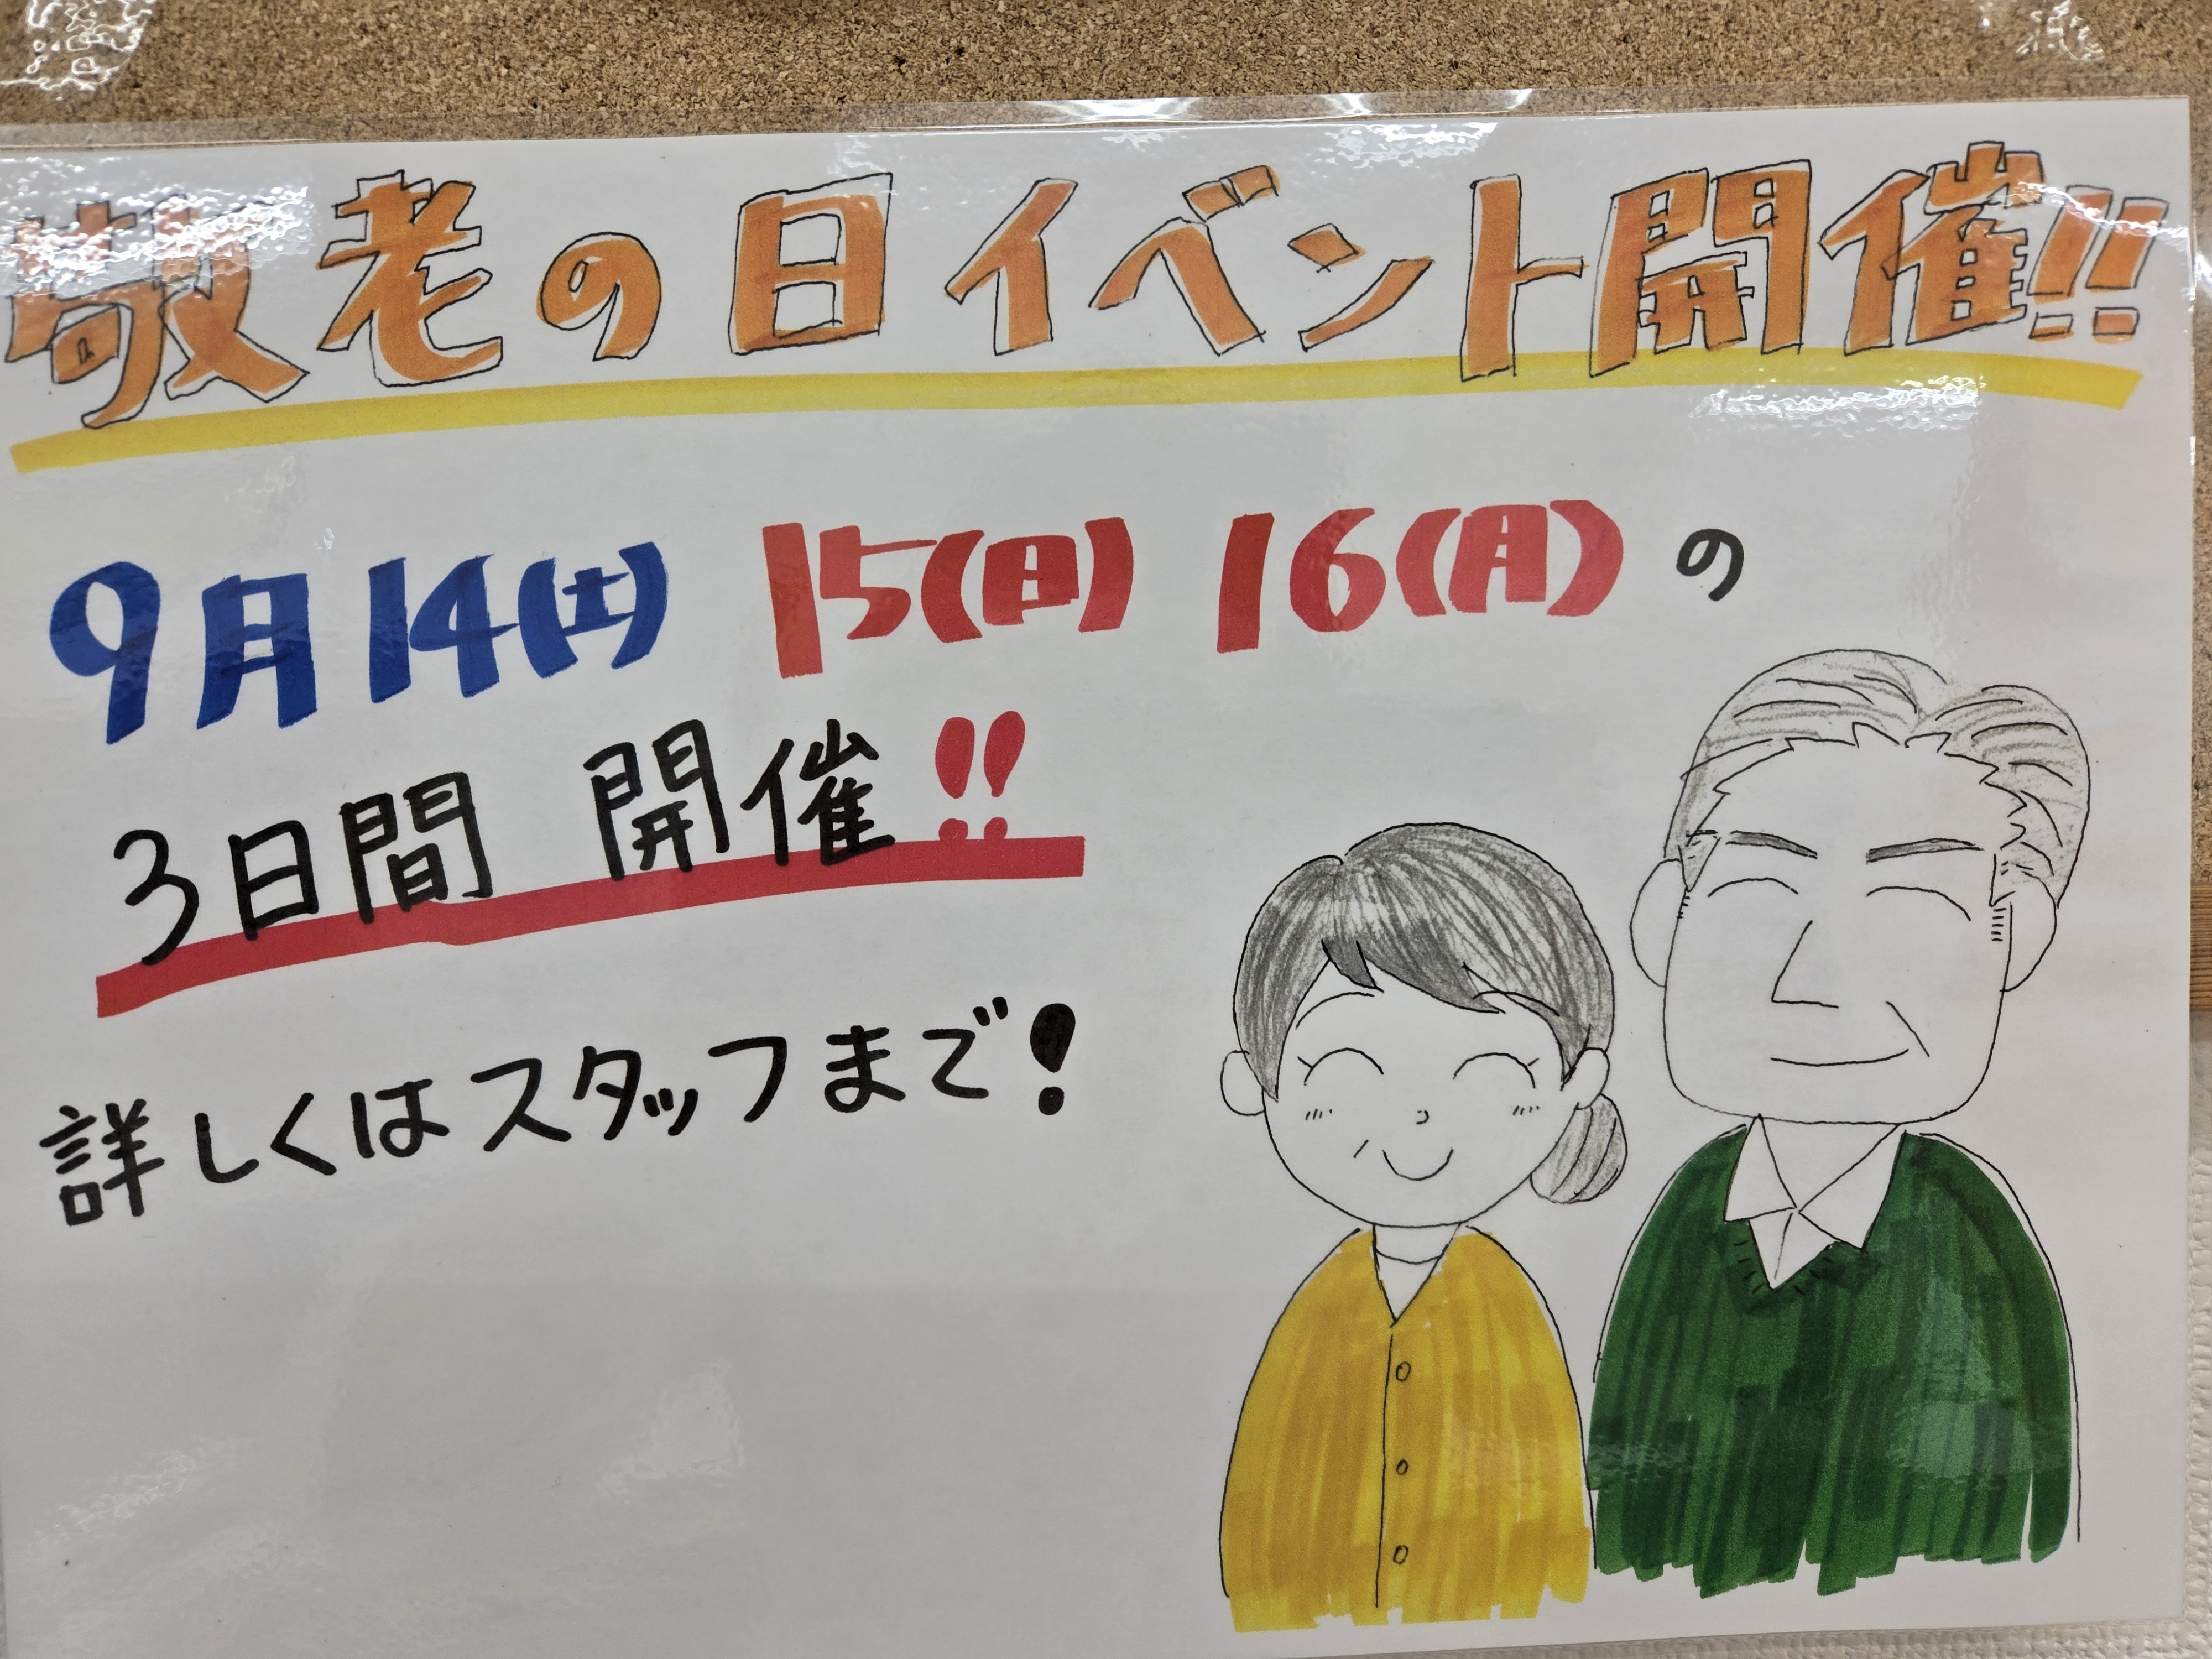 敬老の日イベント開催!!
9月14(土) 15(日) 16(月)の
3日間 開催!!
詳しくはスタッフまで!